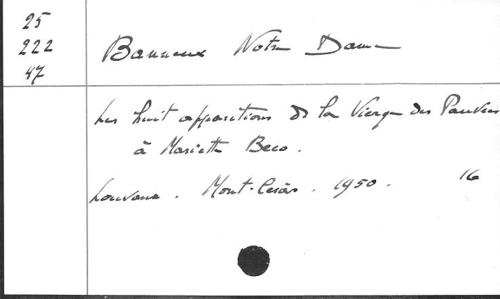 25
222
47
Banneux Notre Dame
Les huit apparitions de la Vierge des Pauvres
à Mariette Beco.
Louvain. Mont-César. 1950. 16